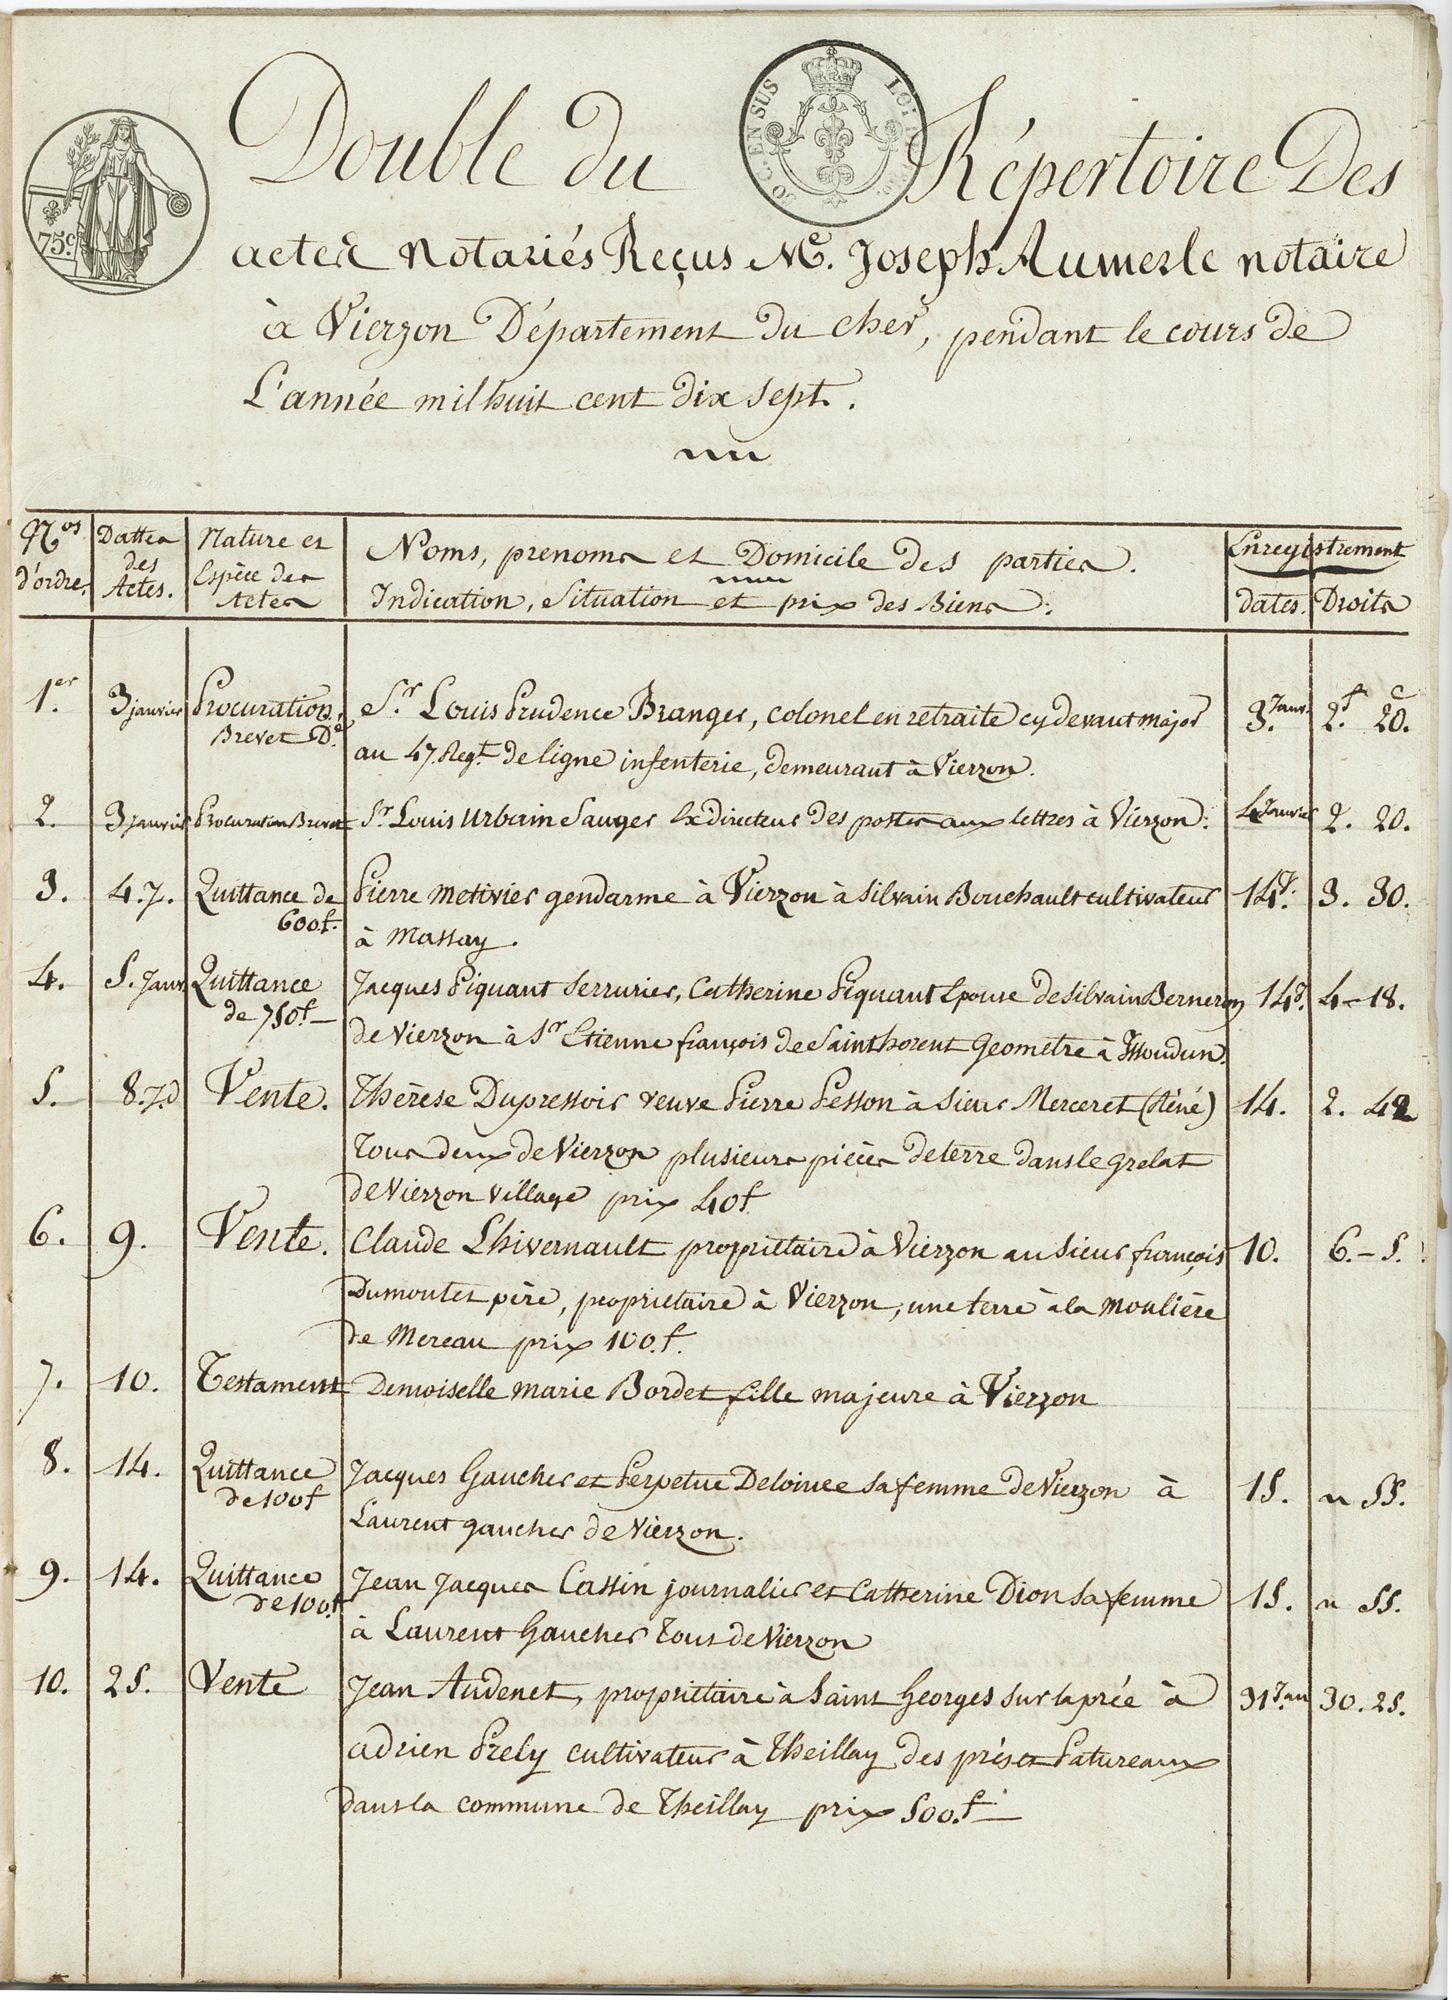 Double du Répertoire Des
75c.
50 C. EN SUS
LOI
actes notariés Reçus Me. Joseph Aumerle notaire
à Vierzon Département du cher, pendant le cours de
L'année mil huit cent dix sept.
Nos d'ordre.
Dattes des Actes.
Nature et Espèce des Actes
Noms, prenoms et Domicile des parties.
Indication, Situation et prix des Biens.
Enregistrement
dates. Droits
1.er 3 janvier Procuration, Sr. Louis Prudence Branger, colonel en retraite cy devant major 3. Janv. 2.f 20.c
Brevet De au 47 Regt. de ligne infenterie, demeurant à Vierzon.
2. 3 janvier Procuration Brevet Sr Louis Urbain Sauger Ex directeur des postes aux lettres à Vierzon. 4 Janvier 2. 20.
3. 4. J. Quittance de Pierre metivier gendarme à Vierzon à Silvain Bouchault cultivateur 14 J. 3. 30.
600f. à Massay.
4. 5. Janv. Quittance Jacques Piquant Serrurier, Catherine Piquant Epouse de Silvain Berneron 14 J. 4 - 18.
de 750f de Vierzon à Sr Etienne françois de Sainthorent Geometre à Issoudun.
5. 8. J.d Vente. Thérèse Dupressoir veuve Pierre Pesson à Sieur Merceret (Réné) 14. 2. 42
Tous deux de Vierzon plusieurs pièces de terre dans le Grelat
de Vierzon village prix 40f
6. 9. Vente. Claude Lhivernault propriétaire à Vierzon au Sieur françois 10. 6. - 5.
Dumoutet père, propriétaire à Vierzon, une terre à la moulière
de Mereau prix 100.f.
7. 10. Testament Demoiselle marie Bordet fille majeure à Vierzon
8. 14. Quittance Jacques Gaucher et Perpetue Deloince sa femme de Vierzon à 15. " 55.
de 100f Laurent gaucher de Vierzon.
9. 14. Quittance Jean Jacques Cassin journalier et Catherine Dion sa femme 15. " 55.
de 100f à Laurent Gaucher Tous de Vierzon
10. 25. Vente Jean Audenet, propriétaire à Saint Georges sur la prée à 31 Jan 30. 25.
adrien Prely cultivateur à Theillay des prés et Patureaux
dans la commune de Theillay prix 500.f